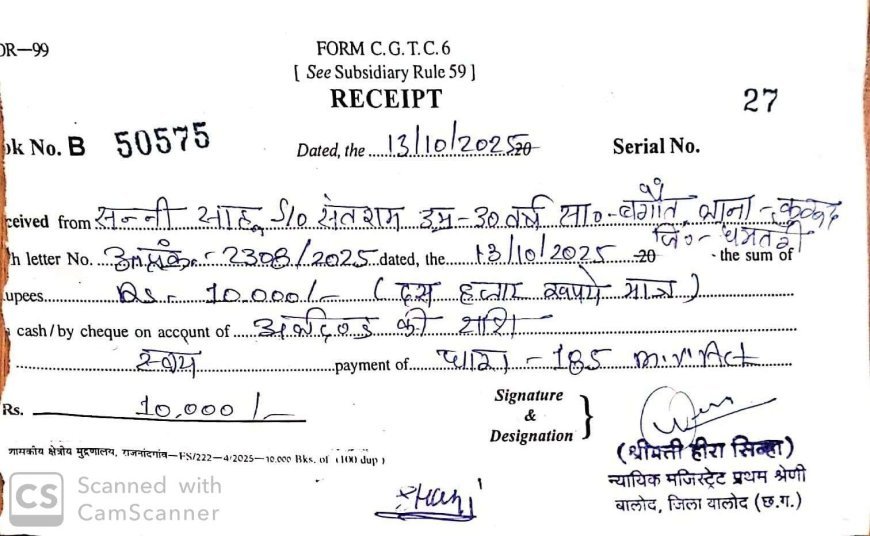 OR—99
FORM C.G.T.C.6
[ See Subsidiary Rule 59 ]
RECEIPT
27
ok No. B 50575
Dated, the 13/10/2025 20
Serial No.
ceived from सन्नी साहू S/o संतराम उम्र-30 वर्ष सा०- थाना-
जि०- धमतरी
h letter No. 2308/2025 dated, the 13/10/2025 20 the sum of
upees Rs. 10,000/- (दस हजार रूपये मात्र)
cash/by cheque on account of अर्थदण्ड की राशि
स्वयं payment of धारा-185 m.v. Act
Rs. 10,000/-
Signature
&
Designation
(श्रीमती हीरा सिन्हा)
न्यायिक मजिस्ट्रेट प्रथम श्रेणी
बालोद, जिला बालोद (छ.ग.)
शासकीय क्षेत्रीय मुद्रणालय, राजनांदगांव—FS/222—4/2025—10,000 Bks. of (100 dup)
CS Scanned with
CamScanner